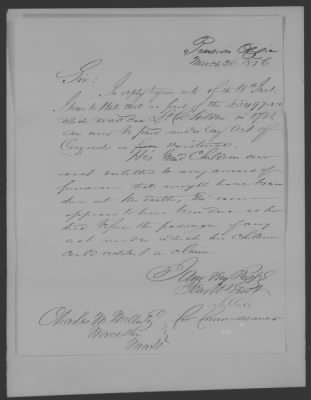 Pension Office
March 26, 1856
Sir:
In reply to your note of the 18th Inst.
I have to state that no part of the
which was due in 178
can now be paid under any Act of
Congress in existence.
His Grand Children are
not entitled to any arrears of
pension that might have been
due at his death,
appears to have been due as he
died before the passage of any
act under which his children
could establish a claim.
I am Very Respy
Your Ob Servt
Commissioner
Charles W. Miller Esq
Worcester
Mass